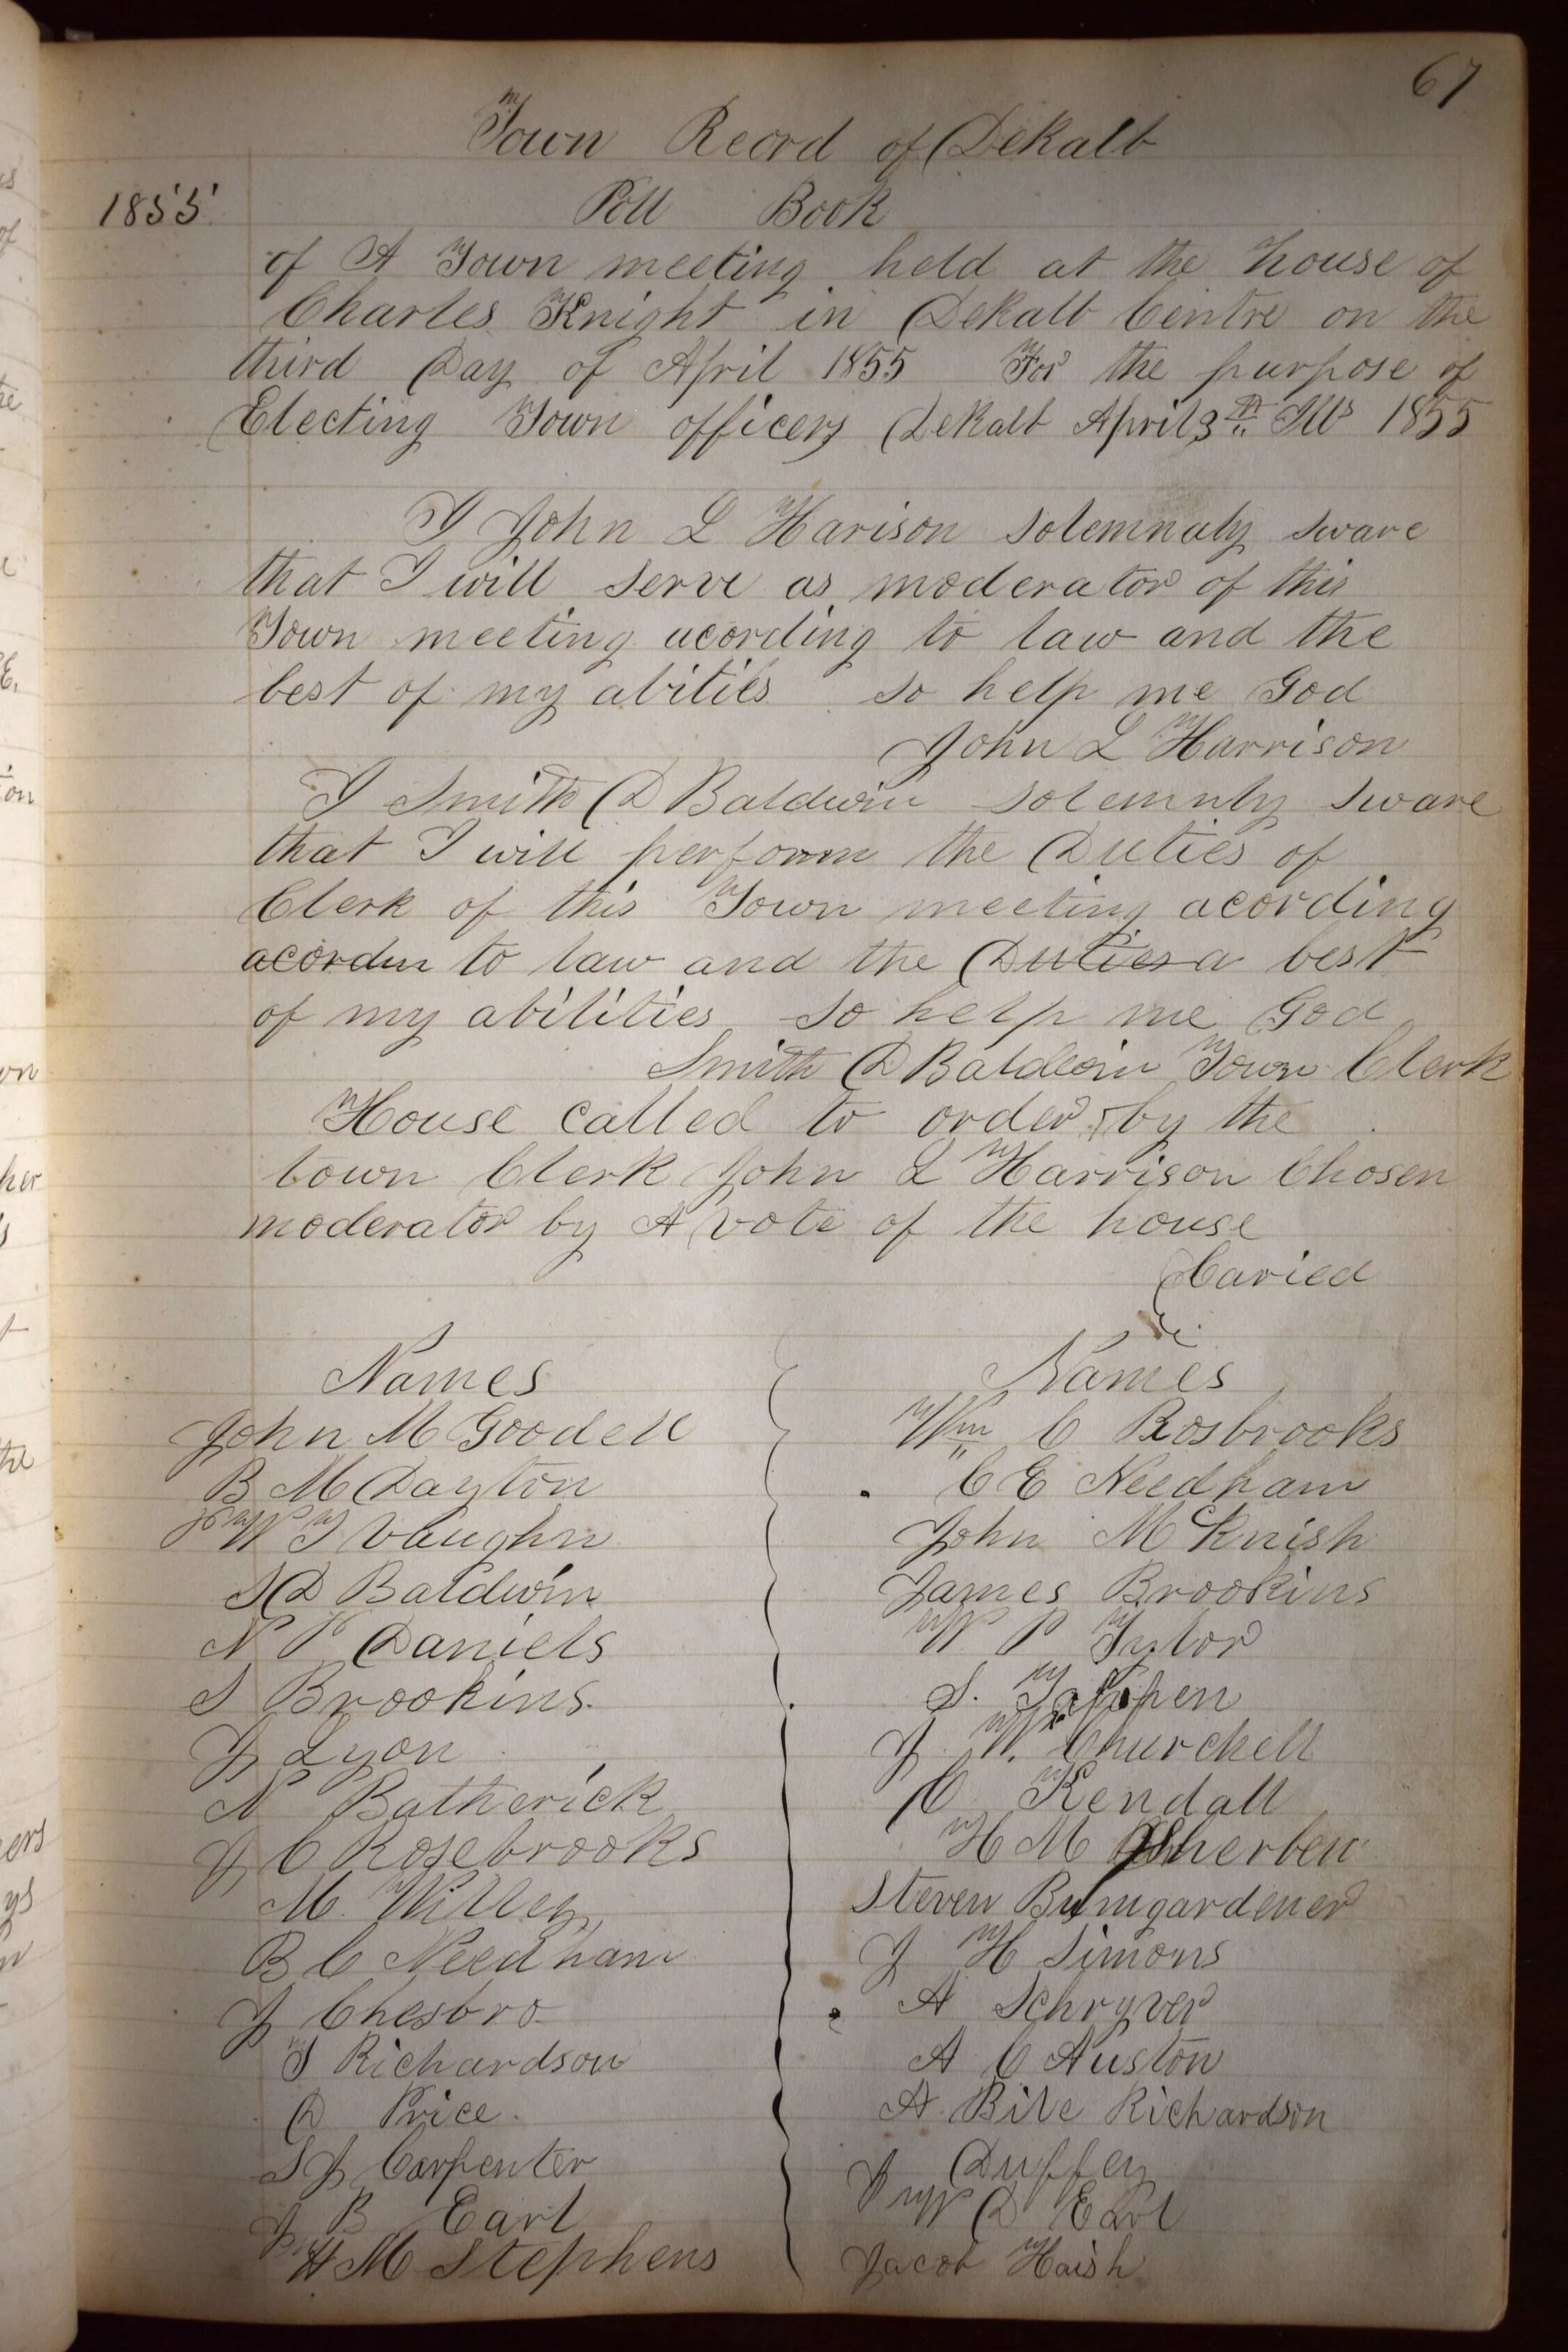 67
Town Reord of Dekalb
1855 Poll Book
of A Town meeting held at the house of
Charles Knight in Dekalb Centre on the
third Day of April 1855 For the purpose of
Electing Town officers Dekalb April 3 Ills 1855
I John L Harison solemnaly sware
that I will serve as moderator of this
Town meeting acording to law and the
best of my abilities so help me God
John L Harrison
I Smith D Baldwin solemnly sware
that I will perform the Duties of
Clerk of this Town meeting acording
acordin to law and the Duties a best
of my abilities so help me God
Smith D Baldwin Town Clerk
House called to order by the
town Clerk John L Harrison Chosen
moderator by A vote of the house
Caried
Names
John M Goodell
B M Dayton
W T Vaughn
S D Baldwin
N P Daniels
S Brookins
J Lyon
N Batherick
J C Rosebrooks
M Willey
B C Needham
J Chesbro
T Richardson
D Price
S J Carpenter
J B Earl
H M Stephens
Names
Wm C Rosbrooks
C E Needham
John McKnish
James Brookins
W P Tylor
S. Tappen
J W. Churchell
O Kendall
H M
Steven Bumgardener
J H Simons
A Schryver
A C Auston
A Bile Richardson
J Duffey
W D Earl
Jacob Haish